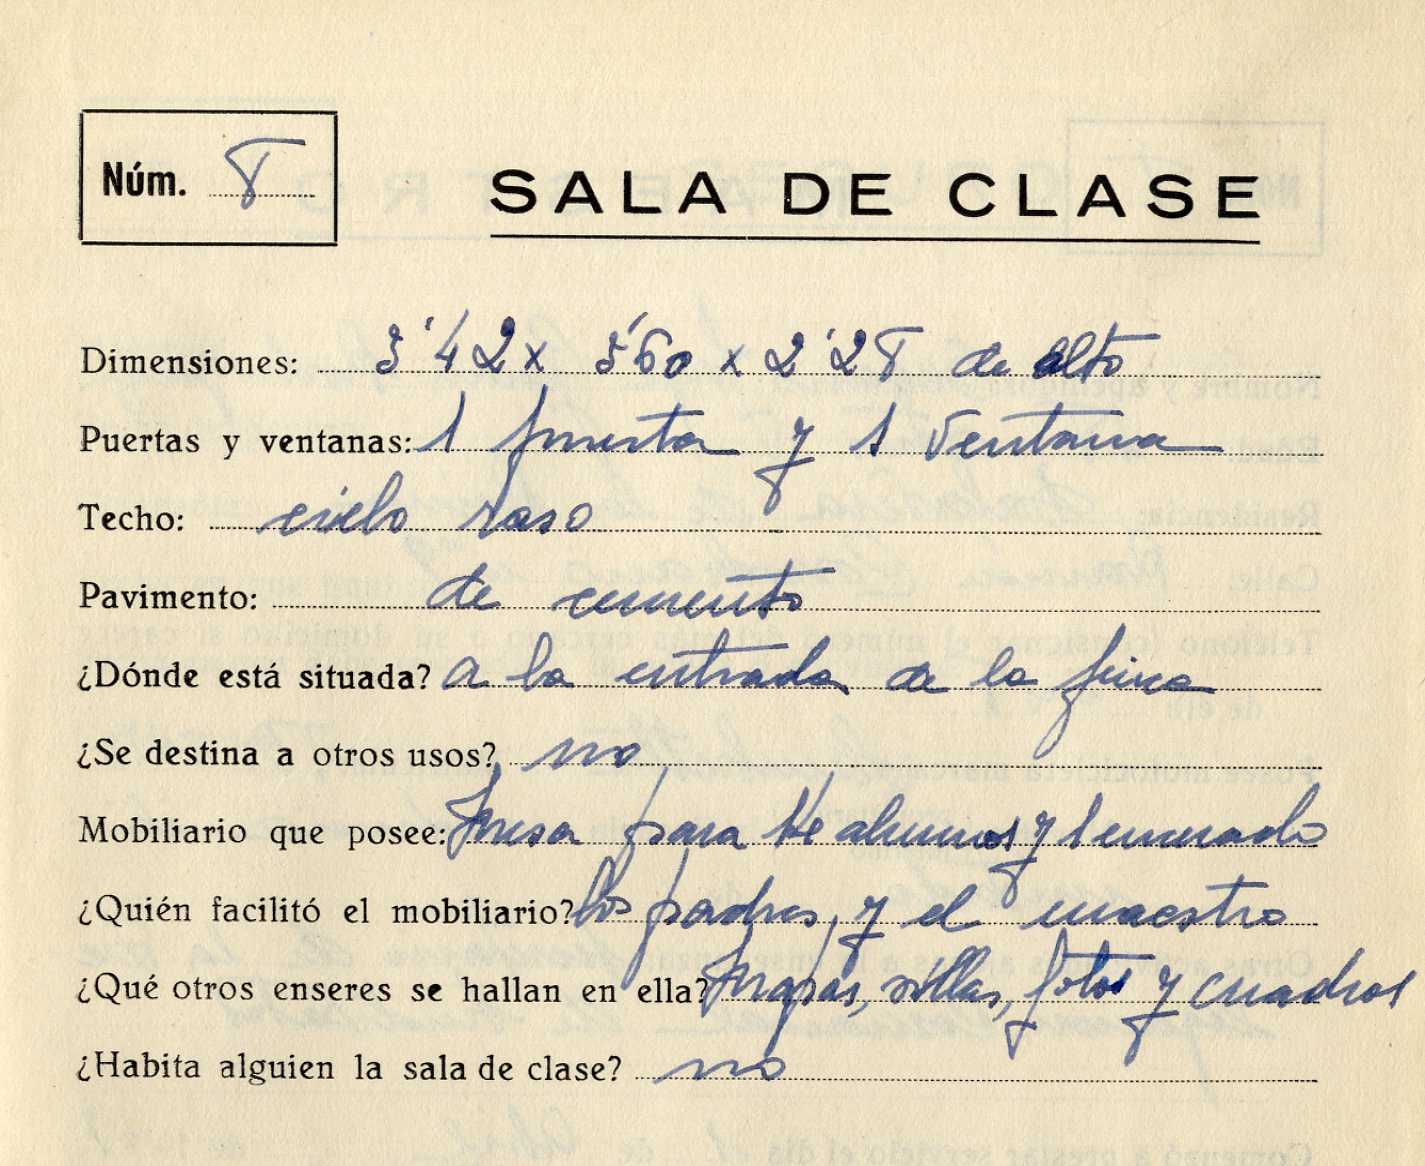 Núm. 8
SALA DE CLASE
Dimensiones: 3'42 x 3'60 x 2'28 de alto
Puertas y ventanas: 1 puerta y 1 ventana
Techo: cielo raso
Pavimento: de cemento
¿Dónde está situada? a la entrada de la finca
¿Se destina a otros usos? no
Mobiliario que posee: mesa para alumnos y 1 encerado
¿Quién facilitó el mobiliario? los padres y el maestro
¿Qué otros enseres se hallan en ella? Mapas, sillas, fotos y cuadros
¿Habita alguien la sala de clase? no